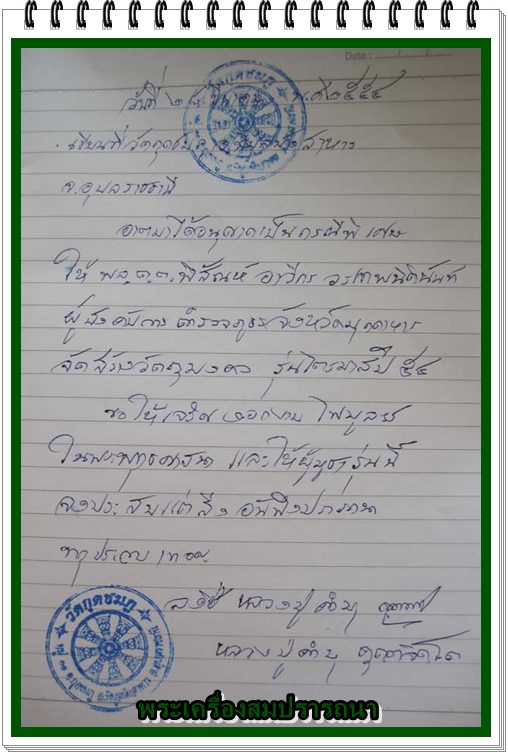 Date :
วันที่ ๒ พ.ศ ๒๕๕๔
เขียนที่วัดกุดชมภู อ.พิบูลมังสาหาร
จ.อุบลราชธานี
อาตมาได้อนุญาตเป็นกรณีพิเศษ
ให้ พล.ต.ต. พิสัณห์ อาวีกร วรเทพนิตินันท์
ผู้บังคับการตำรวจภูธรจังหวัดมุกดาหาร
จัดสร้างวัตถุมงคล รุ่นไตรมาสปี ๕๔
ขอให้เจริญ งอกงาม ไพบูลย์
ในพระพุทธศาสนา และให้ผู้บูชารุ่นนี้
จงประสบแต่สิ่งอันพึงปรารถนา
ทุกประการ เทอญ
ลงชื่อ หลวงปู่คำบุ
หลวงปู่คำบุ คุตฺตจิตฺโต
วัดกุดชมภู
พระเครื่องสมปรารถนา